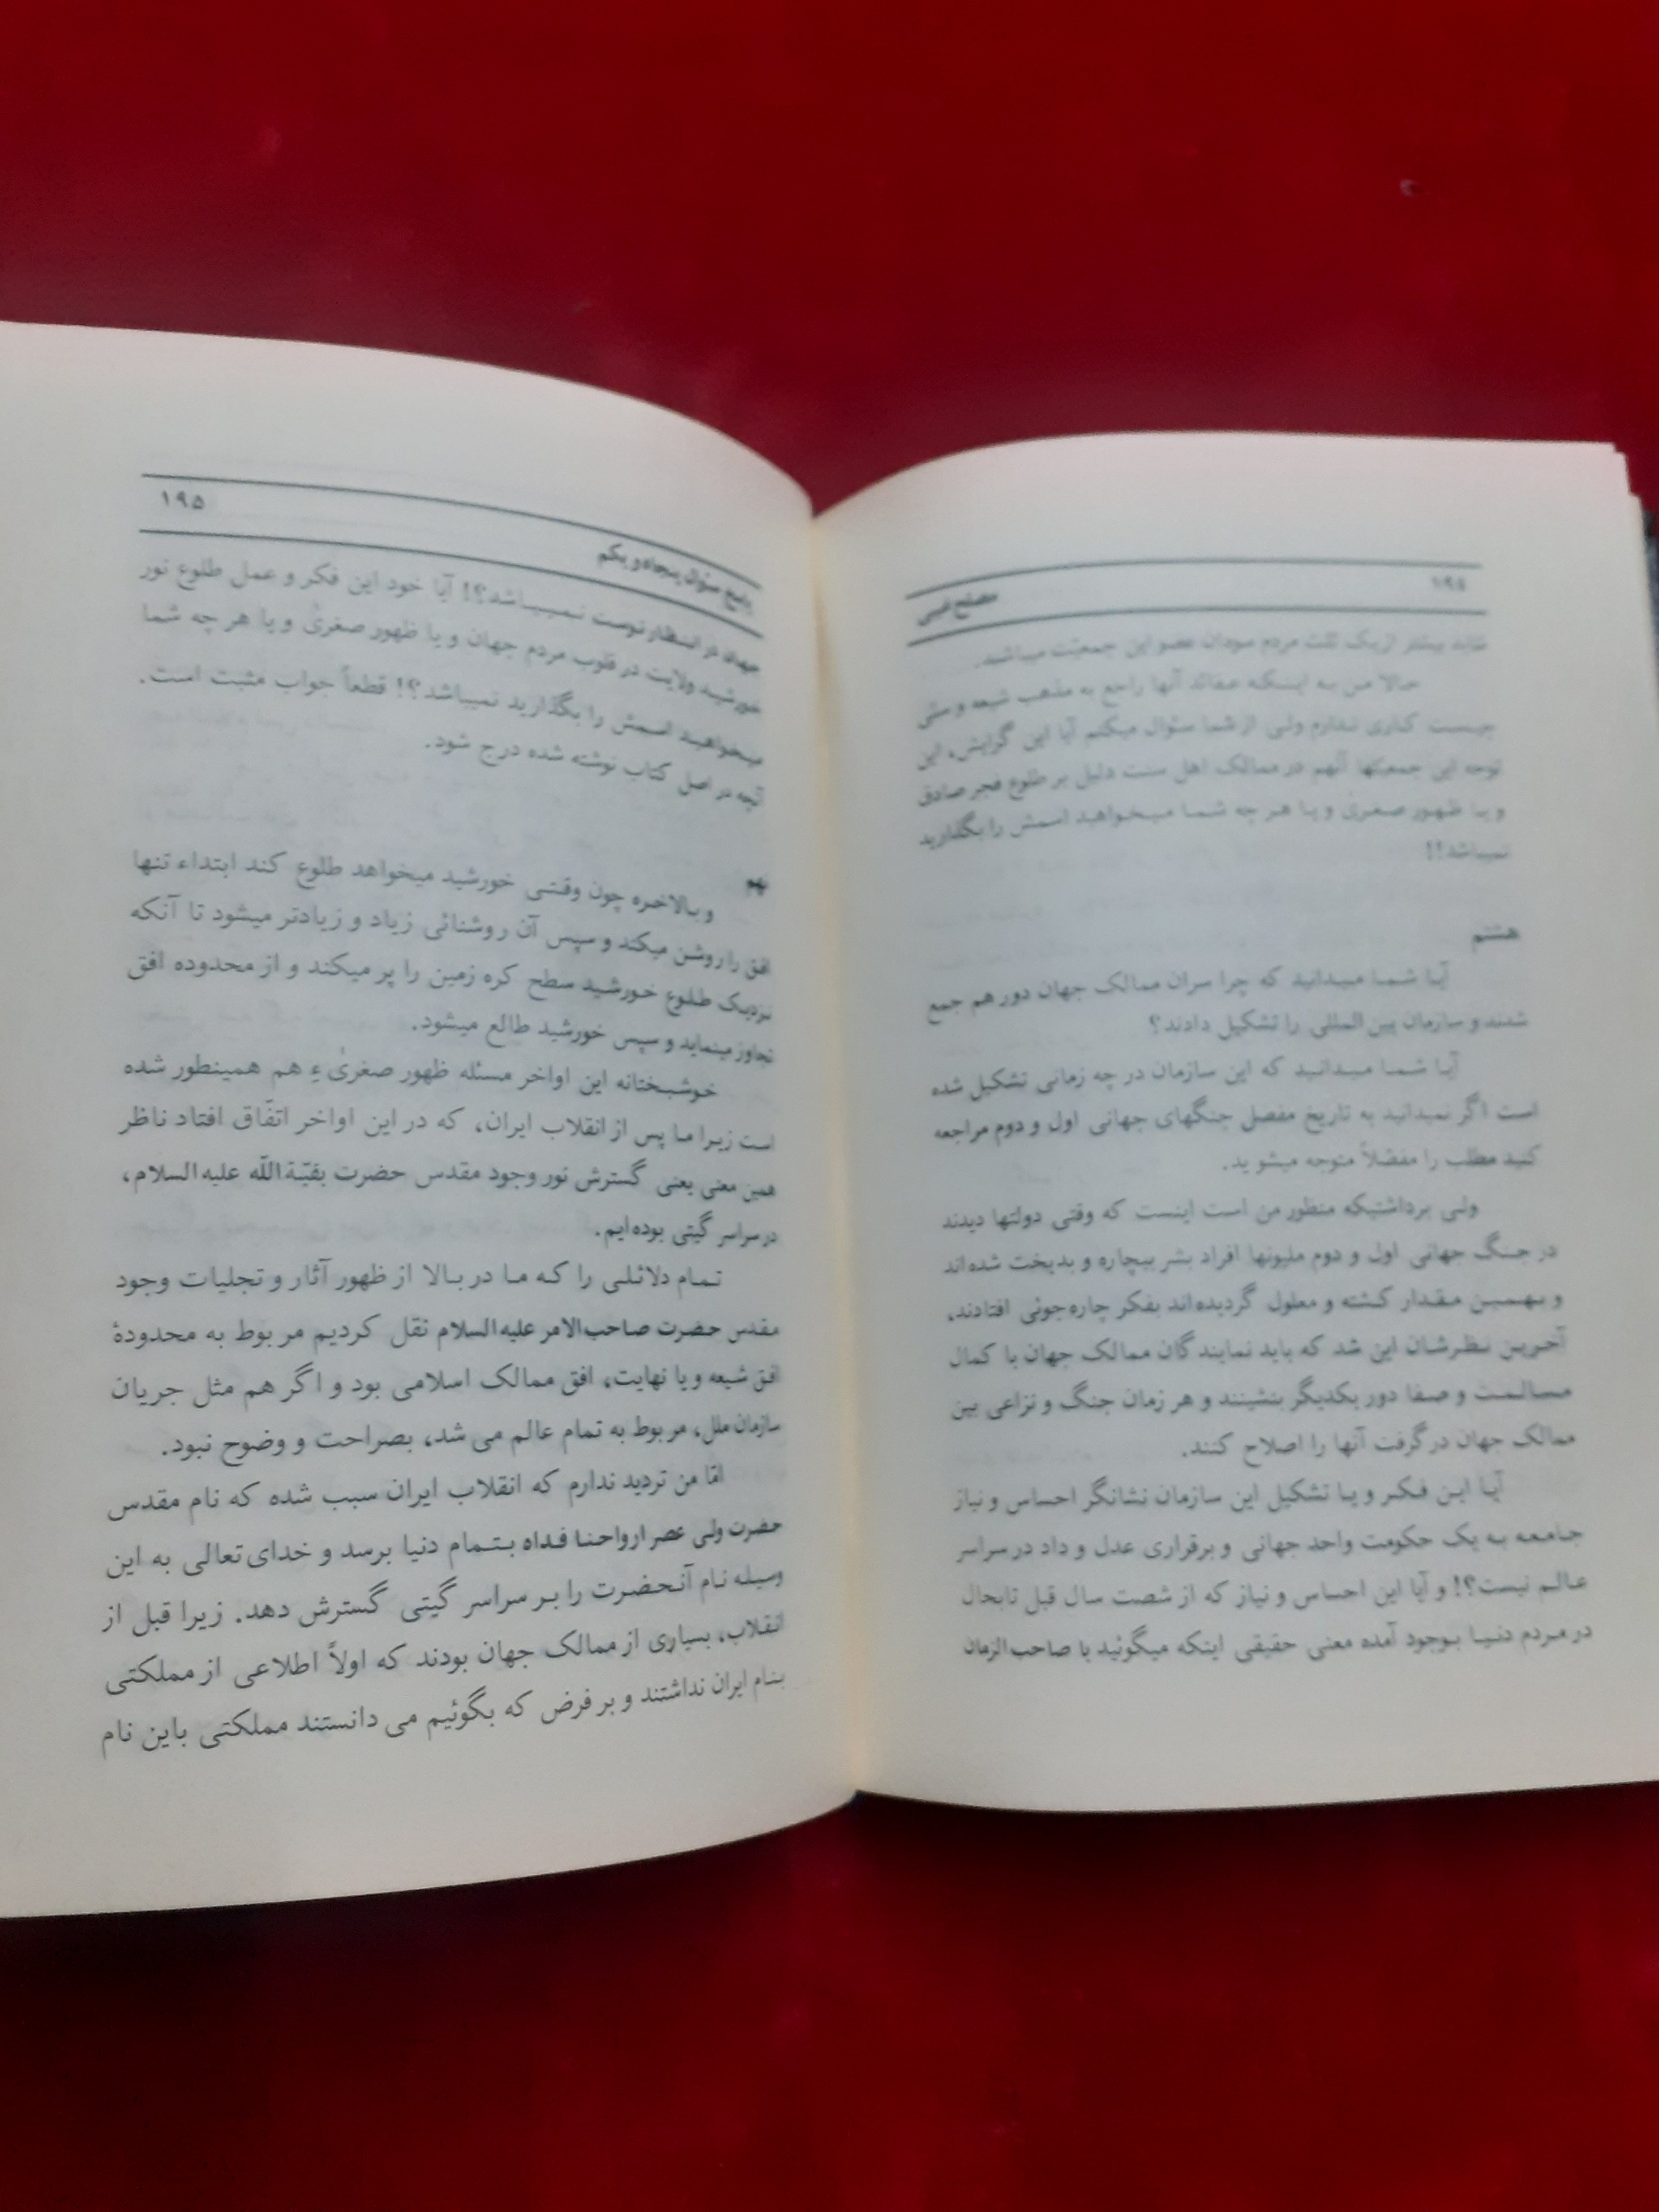 ۱۹۴
مصلح غیبی
شاید بیشتر از یک ثلث مردم سودان عضو این جمعیّت میباشند.
حالا من به اینکه عقائد آنها راجع به مذهب شیعه و سنّی
چیست کاری ندارم ولی از شما سئوال میکنم آیا این گرایش، این
توجه این جمعیّتها آنهم در ممالک اهل سنت دلیل بر طلوع فجر صادق
و یا ظهور صغریٰ و یا هر چه شما میخواهید اسمش را بگذارید
نمیباشد!!
هشتم
آیا شما میدانید که چرا سران ممالک جهان دور هم جمع
شدند و سازمان بین‌المللی را تشکیل دادند؟
آیا شما میدانید که این سازمان در چه زمانی تشکیل شده
است اگر نمیدانید به تاریخ مفصل جنگهای جهانی اول و دوم مراجعه
کنید مطلب را مفصّلاً متوجه میشوید.
ولی برداشتیکه منظور من است اینست که وقتی دولتها دیدند
در جنگ جهانی اول و دوم ملیونها افراد بشر بیچاره و بدبخت شده‌اند
و بهمین مقدار کشته و معلول گردیده‌اند بفکر چاره‌جوئی افتادند،
آخرین نظرشان این شد که باید نمایندگان ممالک جهان با کمال
مسالمت و صفا دور یکدیگر بنشینند و هر زمان جنگ و نزاعی بین
ممالک جهان در گرفت آنها را اصلاح کنند.
آیا این فکر و یا تشکیل این سازمان نشانگر احساس و نیاز
جامعه به یک حکومت واحد جهانی و برقراری عدل و داد در سراسر
عالم نیست؟! و آیا این احساس و نیاز که از شصت سال قبل تابحال
در مردم دنیا بوجود آمده معنی حقیقی اینکه میگوئید یا صاحب‌الزمان
پاسخ سئوال پنجاه و یکم
۱۹۵
جهان در انتظار توست نمیباشد؟! آیا خود این فکر و عمل طلوع نور
خورشید ولایت در قلوب مردم جهان و یا ظهور صغریٰ و یا هر چه شما
میخواهید اسمش را بگذارید نمیباشد؟! قطعاً جواب مثبت است.
آنچه در اصل کتاب نوشته شده درج شود.
نهم
و بالاخره چون وقتی خورشید میخواهد طلوع کند ابتداء تنها
افق را روشن میکند و سپس آن روشنائی زیاد و زیادتر میشود تا آنکه
نزدیک طلوع خورشید سطح کره زمین را پر میکند و از محدوده افق
تجاوز مینماید و سپس خورشید طالع میشود.
خوشبختانه این اواخر مسئله ظهور صغریٰ ءِ هم همینطور شده
است زیرا ما پس از انقلاب ایران، که در این اواخر اتّفاق افتاد ناظر
همین معنی یعنی گسترش نور وجود مقدس حضرت بقیّة‌اللّه علیه‌السلام،
در سراسر گیتی بوده‌ایم.
تمام دلائلی را که ما در بالا از ظهور آثار و تجلیات وجود
مقدس حضرت صاحب‌الامر علیه‌السلام نقل کردیم مربوط به محدودهٔ
افق شیعه و یا نهایت، افق ممالک اسلامی بود و اگر هم مثل جریان
سازمان ملل، مربوط به تمام عالم می شد، بصراحت و وضوح نبود.
امّا من تردید ندارم که انقلاب ایران سبب شده که نام مقدس
حضرت ولی عصر ارواحنا فداه بتمام دنیا برسد و خدای تعالی به این
وسیله نام آنحضرت را بر سراسر گیتی گسترش دهد. زیرا قبل از
انقلاب، بسیاری از ممالک جهان بودند که اولاً اطلاعی از مملکتی
بنام ایران نداشتند و بر فرض که بگوئیم می دانستند مملکتی باین نام